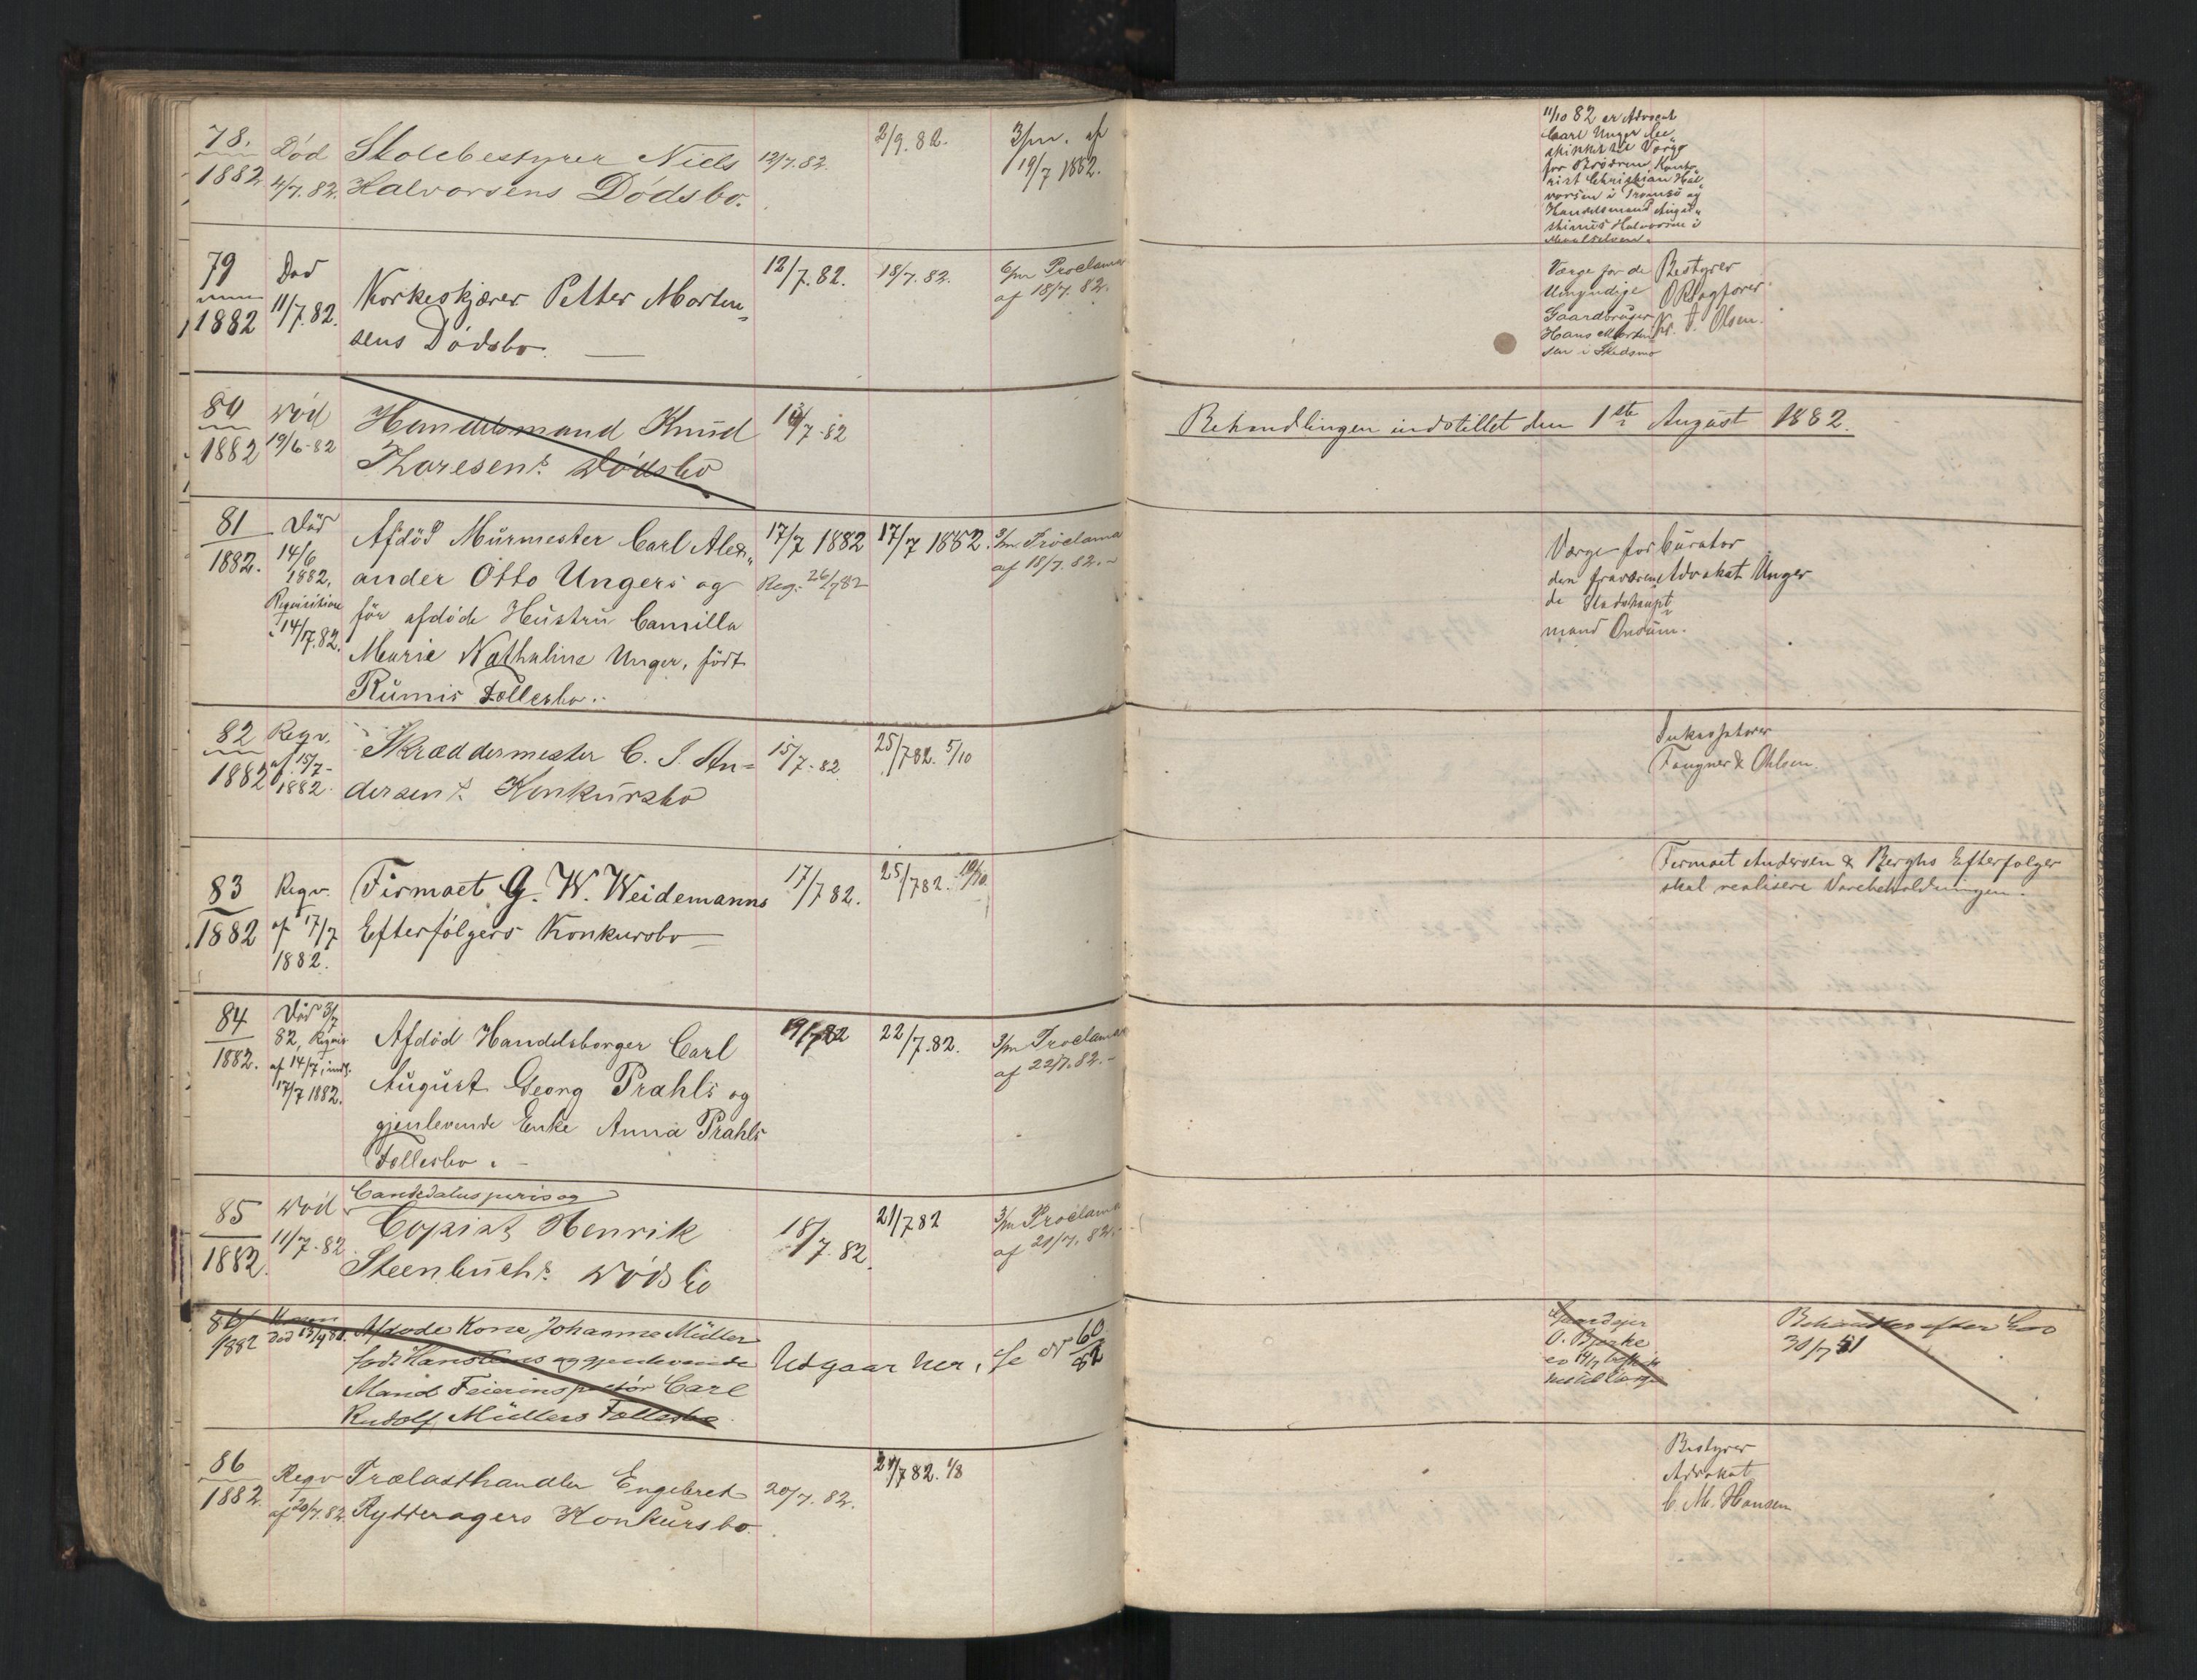 78.
1882
Död
4/7.82.
Skolebestyrer Niels
Halvorsens Dödsbo.
12/7.82.
2/9.82.
3/m. af
19/7 1882.
11/10 82 er Advocat
Carl Unger be
skikket til Værge
for Brödrene, Konto
rist Christian Hal
vorsen i Tromsö og
Handelsmand August
Halvorsen i
79
1882
Död
11/7.82.
Korkeskjærer Petter Morten
sens Dödsbo.
12/7.82.
18/7.82.
6/m Proclama
af 18/7.82.
Værge for de
Umyndige
Gaardbruger
Hans Morten
sen i Skedsmo
Bestyrer
ORSagförer
N. A. Olsen.
80
1882
Död
19/6-82
Handelsmand Knud
Thoresens Dödsbo
14/7-82
Behandlingen indstillet den 1ste August 1882.
81
1882.
Död
14/6
1882,
Reqvisition
14/7.82.
Afdöd Murmester Carl Alex
ander Otto Ungers og
för afdöde Hustru Camilla
Marie Nathaline Unger, födt
Rumis Fællesbo.
17/7 1882
Reg. 26/7 82
17/7 1882.
3/m. Proclama
af 18/7.82.
Værge for
den fraværen
de Stadshaupt
mand Onsum.
Curator
Advokat Unger
82
1882
Reqv.
af 15/7-
1882.
Skræddermester C. J. An=
dersens Konkursbo
15/7-82
25/7 82. 5/10
Inkassatorer
Fougner & Ohlsen.
83
1882
Reqv.
af 17/7
1882.
Firmaet G. W. Weidemanns
Efterfölgers Konkursbo
17/7 82.
25/7 82. 19/10
Firmaet Andersen & Berghs Efterfolger
skal realisere Varebeholdningen.
84
1882.
Död 3/7
82, Reqvis
af 14/7, indk.
17/7 1882.
Afdöd Handelsborger Carl
August Georg Prahls og
gjenlevende Enke Anna Prahls
Fællesbo.
19/7 82
22/7.82.
3/m Proclama
af 22/7.82.
85
1882.
Död
11/7-82
Candidatus juris og
Copist Henrik
Steenbuchs Dödsbo
18/7.82.
21/7 82
3/m Proclama
af 21/7.82.
86/
1882
Konen
död 13/4 81.
Afdöde Kone Johanne Müller
födt Hanstens og gjenlevende
Mand Feierinspektör Carl
Rudolf Müllers Fællesbo.
Udgaar her, se No 60/82
Gaardejer
O. Bjerke
er 14/7 beskik
ket til Værge
Behandles efter Lov
30/7 51
86
1882.
Reqv
af 20/7.82.
Trælasthandler Engebret
Rytteragers Konkursbo.
20/7.82.
24/7 82. 1/8
Bestyrer
Advokat
C. M. Hansen